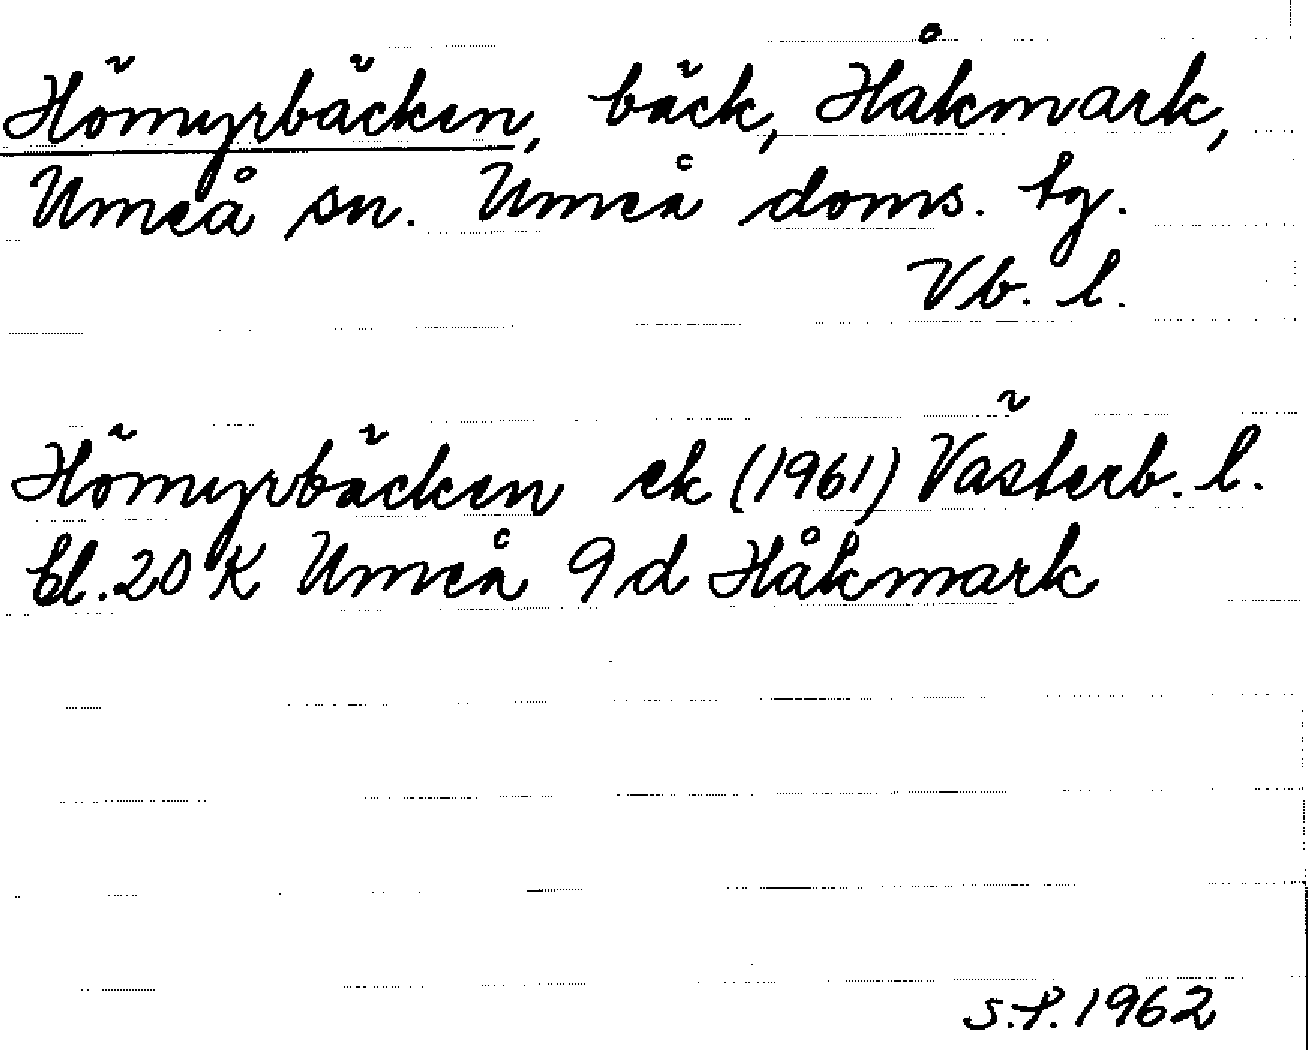 Hömyrbäcken, bäck, Håkmark,
Umeå sn. Umeå doms. tg.
Vb. l.
Hömyrbäcken ek (1961) Västerb. l.
bl. 20 K Umeå 9 d Håkmark
S.P. 1962